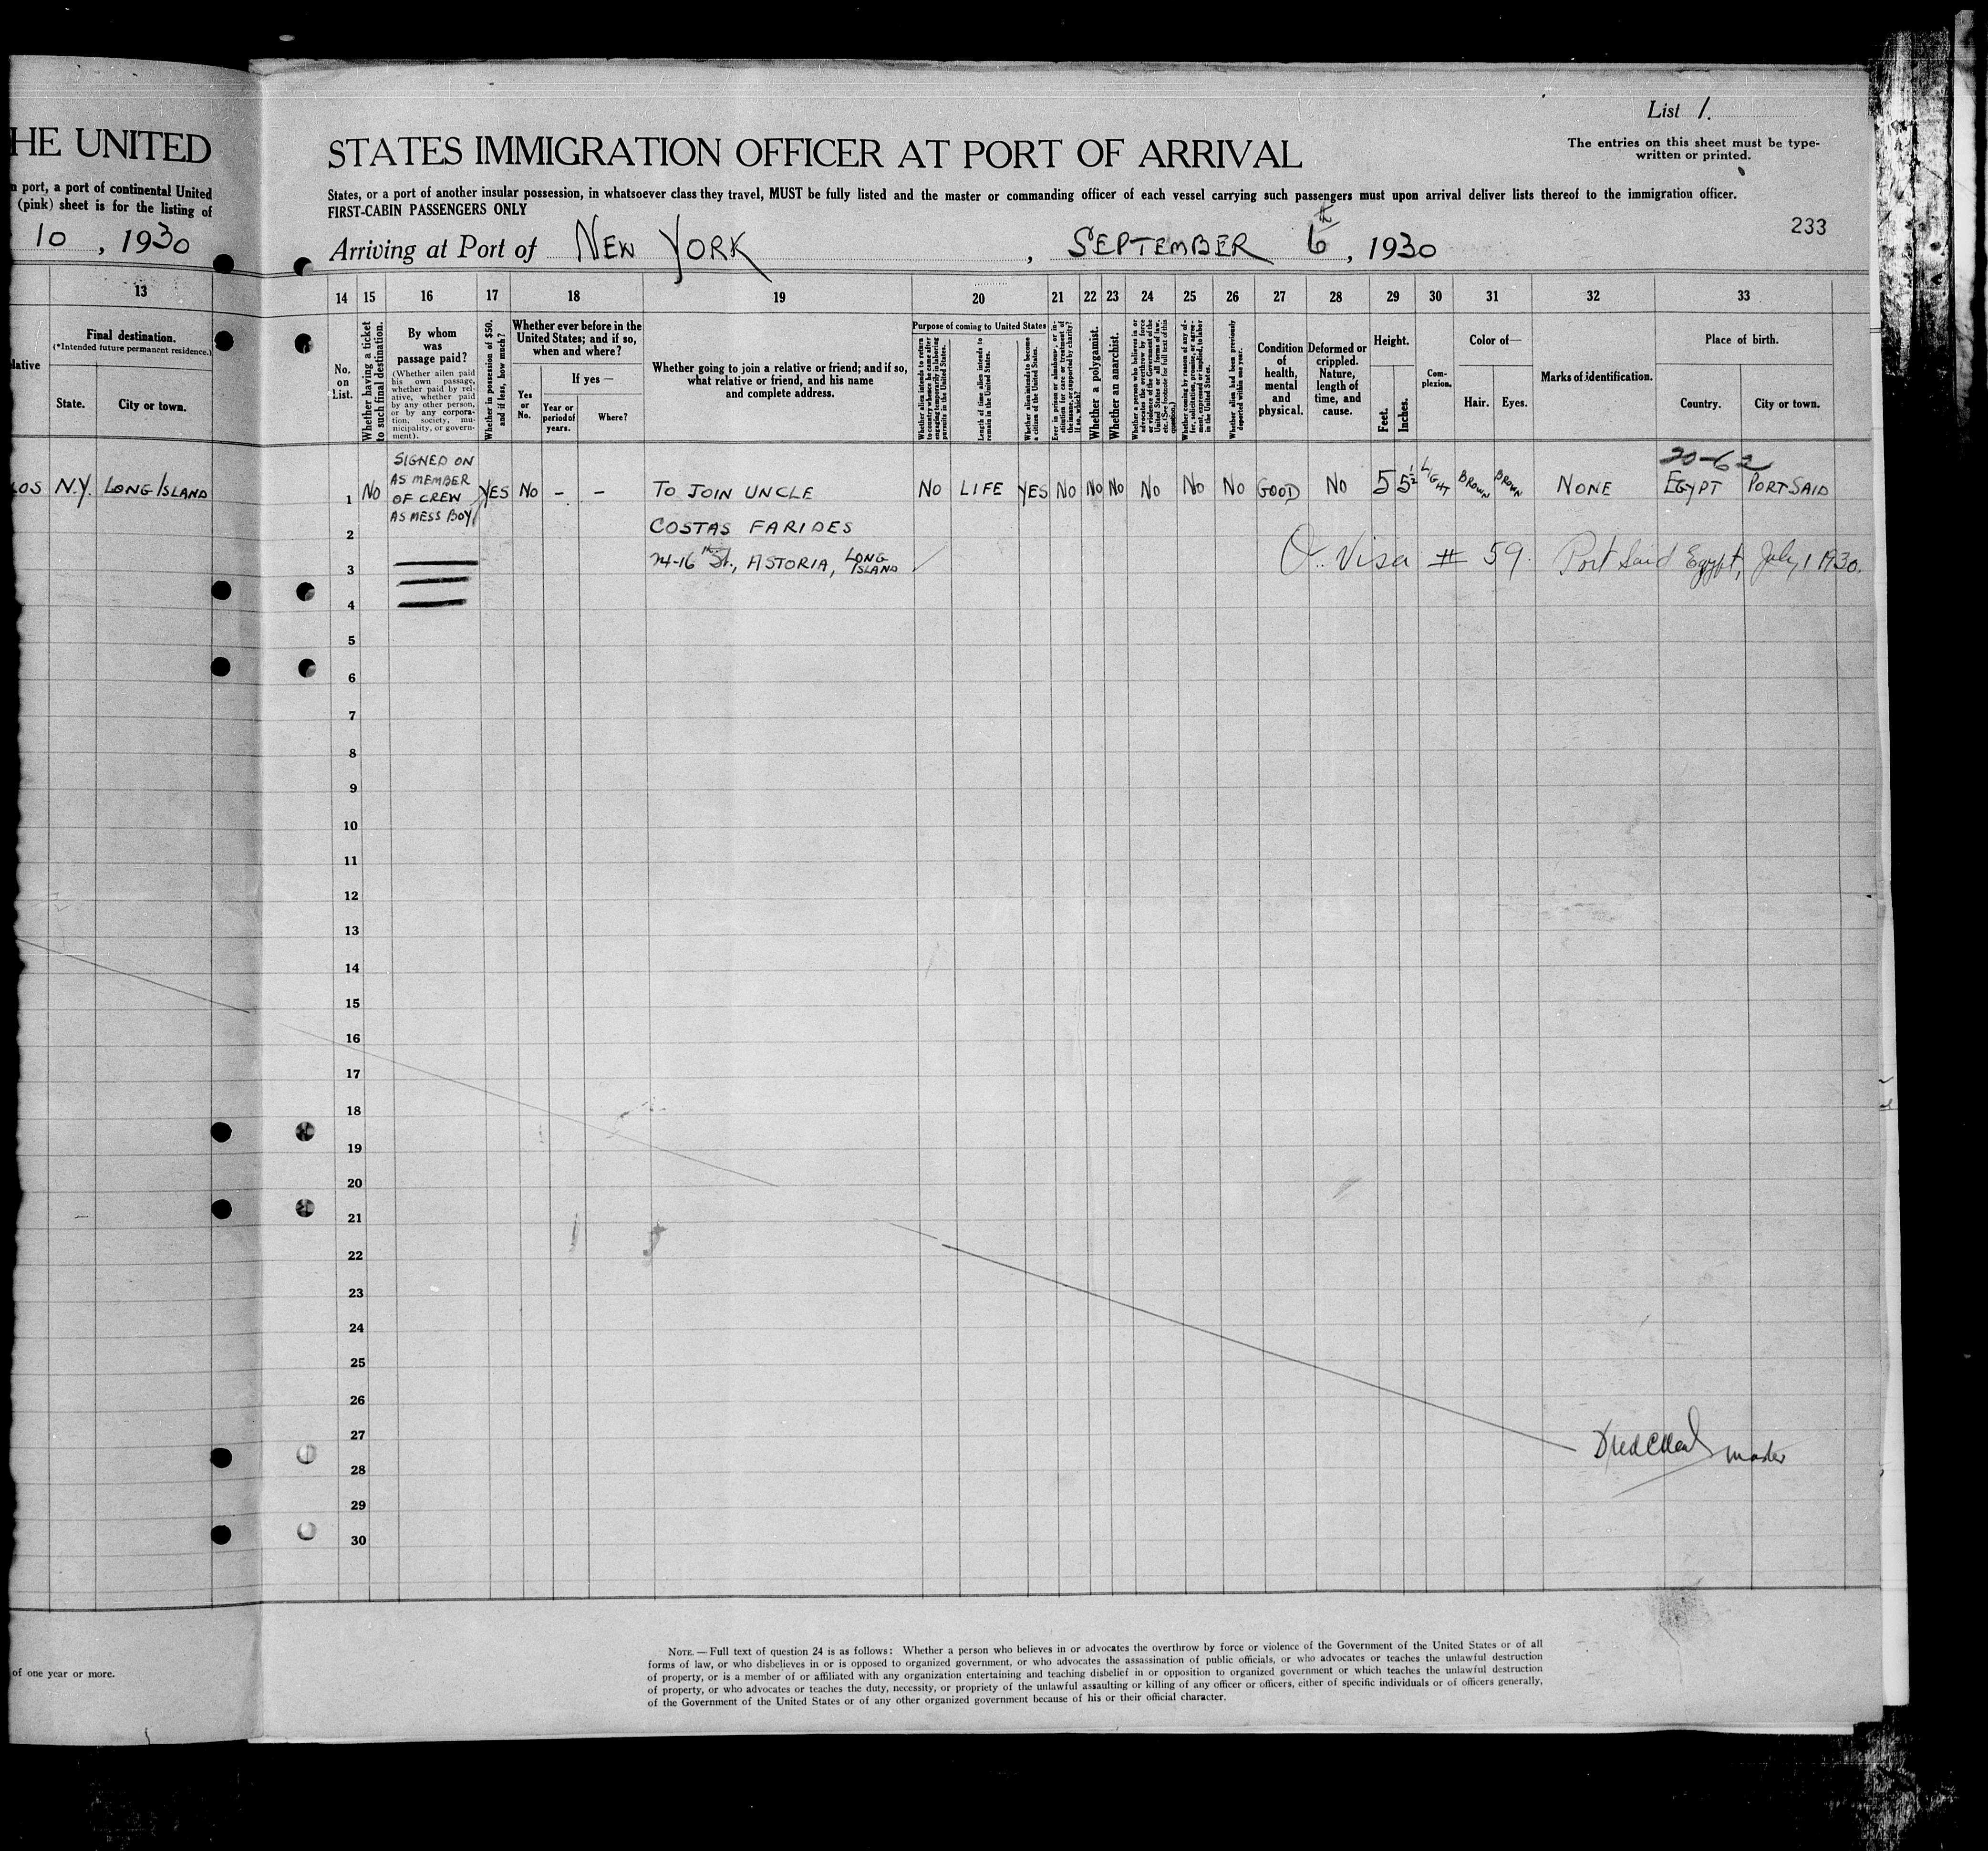 HE UNITED
n port, a port of continental United
(pink) sheet is for the listing of
10, 1930
13
lative
Final destination.
(*Intended future permanent residence.)
State.
City or town.
LOS N.Y. LONG ISLAND
of one year or more.
List 1.
The entries on this sheet must be type-
written or printed.
STATES IMMIGRATION OFFICER AT PORT OF ARRIVAL
States, or a port of another insular possession, in whatsoever class they travel, MUST be fully listed and the master or commanding officer of each vessel carrying such passengers must upon arrival deliver lists thereof to the immigration officer.
FIRST-CABIN PASSENGERS ONLY
233
Arriving at Port of NEW YORK, SEPTEMBER 6th, 1930
14 15 16 17 18 19 20 21 22 23 24 25 26 27 28 29 30 31 32 33
No. on List.
Whether having a ticket to such final destination.
By whom was passage paid?
(Whether alien paid his own passage, whether paid by relative, whether paid by any other person, or by any corporation, society, municipality, or government).
Whether in possession of $50, and if less, how much?
Whether ever before in the United States; and if so, when and where?
Yes or No.
If yes—
Year or period of years.
Where?
Whether going to join a relative or friend; and if so, what relative or friend, and his name and complete address.
Purpose of coming to United States
Whether alien intends to return to country whence he came after engaging temporarily in laboring pursuits in the United States.
Length of time alien intends to remain in the United States.
Whether alien intends to become a citizen of the United States.
Ever in prison or almshouse, or institution for care or treatment of the insane, or supported by charity? If so, which?
Whether a polygamist.
Whether an anarchist.
Whether a person who believes in or advocates the overthrow by force or violence of the Government of the United States or all forms of law, etc. (See footnote for full text of this question.)
Whether coming by reason of any offer, solicitation, promise, or agreement, expressed or implied, to labor in the United States.
Whether alien had been previously deported within one year.
Condition of health, mental and physical.
Deformed or crippled. Nature, length of time, and cause.
Height.
Feet.
Inches.
Complexion.
Color of—
Hair.
Eyes.
Marks of identification.
Place of birth.
Country.
City or town.
20-62
1 No SIGNED ON AS MEMBER OF CREW AS MESS BOY YES No - - TO JOIN UNCLE No LIFE YES No No No No No No GOOD No 5 5½ LIGHT BROWN BROWN NONE EGYPT PORT SAID
2 COSTAS FARIDES
3 24-16th St., ASTORIA, LONG ISLAND Visa # 59. Port Said Egypt, July 1 1930.
4
5
6
7
8
9
10
11
12
13
14
15
16
17
18
19
20
21
22
23
24
25
26
27
master
28
29
30
NOTE.—Full text of question 24 is as follows: Whether a person who believes in or advocates the overthrow by force or violence of the Government of the United States or of all
forms of law, or who disbelieves in or is opposed to organized government, or who advocates the assassination of public officials, or who advocates or teaches the unlawful destruction
of property, or is a member of or affiliated with any organization entertaining and teaching disbelief in or opposition to organized government or which teaches the unlawful destruction
of property, or who advocates or teaches the duty, necessity, or propriety of the unlawful assaulting or killing of any officer or officers, either of specific individuals or of officers generally,
of the Government of the United States or of any other organized government because of his or their official character.